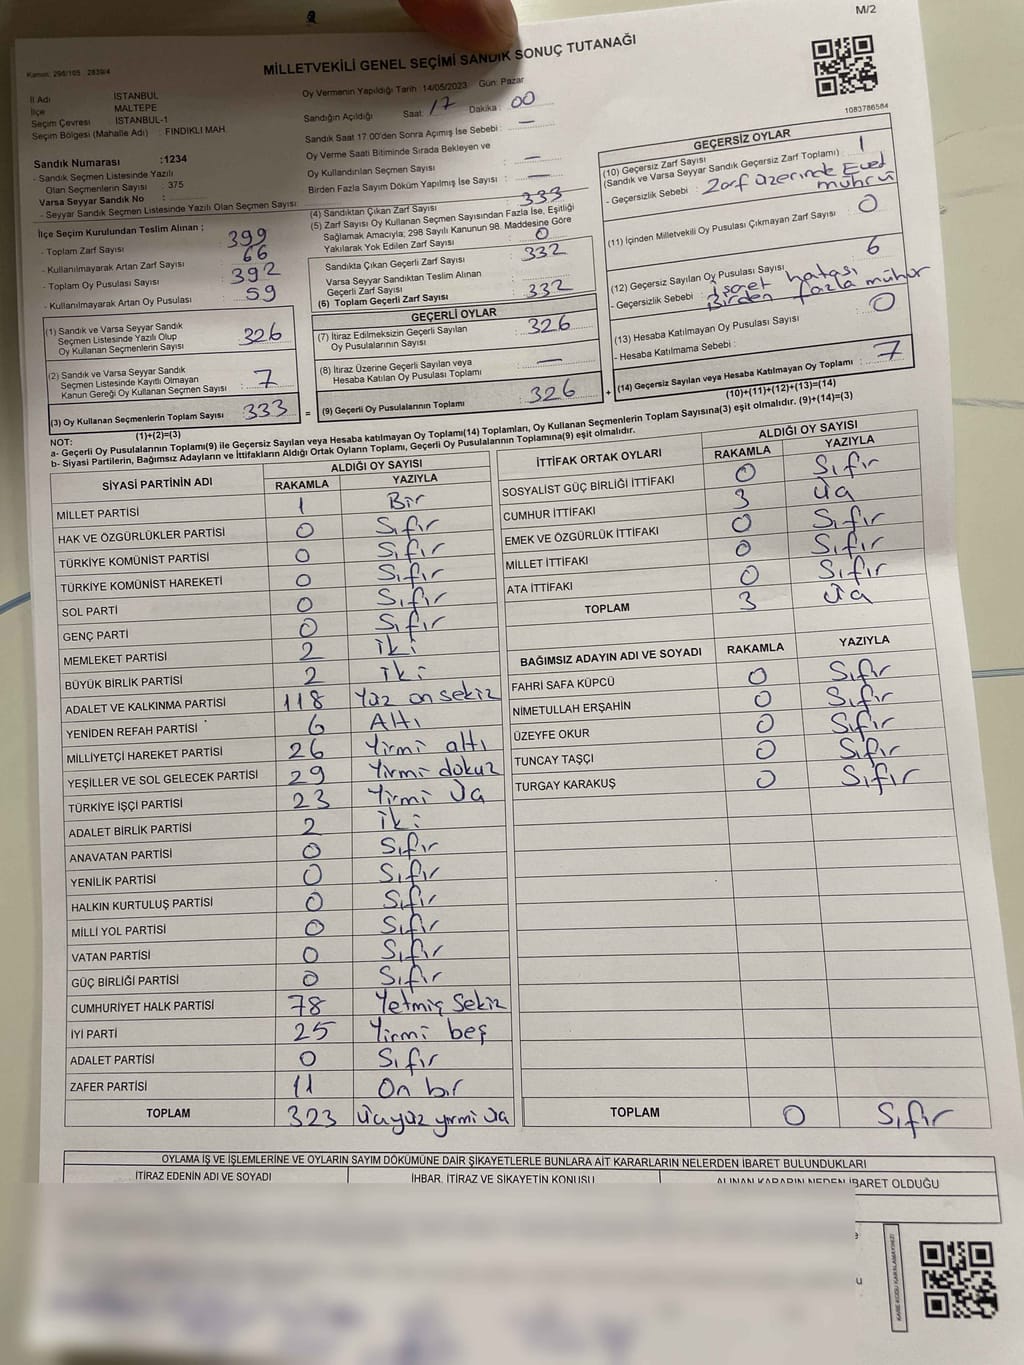 M/2
Kanun: 298/105 2839/4
MİLLETVEKİLİ GENEL SEÇİMİ SANDIK SONUÇ TUTANAĞI
İl Adı İSTANBUL
İlçe MALTEPE
Seçim Çevresi İSTANBUL-1
Seçim Bölgesi (Mahalle Adı) : FINDIKLI MAH.
Sandık Numarası :1234
- Sandık Seçmen Listesinde Yazılı
Olan Seçmenlerin Sayısı : 375
Varsa Seyyar Sandık No :
- Seyyar Sandık Seçmen Listesinde Yazılı Olan Seçmen Sayısı :
Oy Vermenin Yapıldığı Tarih :14/05/2023 Gün: Pazar
Sandığın Açıldığı Saat: 17 Dakika : 00
Sandık Saat 17:00'den Sonra Açılmış İse Sebebi : —
Oy Verme Saati Bitiminde Sırada Bekleyen ve
Oy Kullandırılan Seçmen Sayısı : —
Birden Fazla Sayım Döküm Yapılmış İse Sayısı : —
1083786564
İlçe Seçim Kurulundan Teslim Alınan ;
- Toplam Zarf Sayısı : 399
- Kullanılmayarak Artan Zarf Sayısı : 66
- Toplam Oy Pusulası Sayısı : 392
- Kullanılmayarak Artan Oy Pusulası : 59
(1) Sandık ve Varsa Seyyar Sandık
Seçmen Listesinde Yazılı Olup
Oy Kullanan Seçmenlerin Sayısı : 326
(2) Sandık ve Varsa Seyyar Sandık
Seçmen Listesinde Kayıtlı Olmayan
Kanun Gereği Oy Kullanan Seçmen Sayısı : 7
(3) Oy Kullanan Seçmenlerin Toplam Sayısı : 333 =
(1)+(2)=(3)
(4) Sandıktan Çıkan Zarf Sayısı : 333
(5) Zarf Sayısı Oy Kullanan Seçmen Sayısından Fazla İse, Eşitliği
Sağlamak Amacıyla; 298 Sayılı Kanunun 98. Maddesine Göre
Yakılarak Yok Edilen Zarf Sayısı : 0
Sandıkta Çıkan Geçerli Zarf Sayısı : 332
Varsa Seyyar Sandıktan Teslim Alınan
Geçerli Zarf Sayısı :
(6) Toplam Geçerli Zarf Sayısı : 332
GEÇERLİ OYLAR
(7) İtiraz Edilmeksizin Geçerli Sayılan
Oy Pusulalarının Sayısı : 326
(8) İtiraz Üzerine Geçerli Sayılan veya
Hesaba Katılan Oy Pusulası Toplamı : —
(9) Geçerli Oy Pusulalarının Toplamı : 326 +
GEÇERSİZ OYLAR
(10) Geçersiz Zarf Sayısı
(Sandık ve Varsa Seyyar Sandık Geçersiz Zarf Toplamı) : 1
- Geçersizlik Sebebi : Zarf üzerinde Evet mührü
(11) İçinden Milletvekili Oy Pusulası Çıkmayan Zarf Sayısı : 0
(12) Geçersiz Sayılan Oy Pusulası Sayısı : 6
- Geçersizlik Sebebi : İşaret hatası
Birden fazla mühür
(13) Hesaba Katılmayan Oy Pusulası Sayısı : 0
- Hesaba Katılmama Sebebi :
(14) Geçersiz Sayılan veya Hesaba Katılmayan Oy Toplamı : 7
(10)+(11)+(12)+(13)=(14)
NOT:
a- Geçerli Oy Pusulalarının Toplamı(9) ile Geçersiz Sayılan veya Hesaba katılmayan Oy Toplamı(14) Toplamları, Oy Kullanan Seçmenlerin Toplam Sayısına(3) eşit olmalıdır. (9)+(14)=(3)
b- Siyasi Partilerin, Bağımsız Adayların ve İttifakların Aldığı Ortak Oyların Toplamı, Geçerli Oy Pusulalarının Toplamına(9) eşit olmalıdır.
SİYASİ PARTİNİN ADI ALDIĞI OY SAYISI
RAKAMLA YAZIYLA
MİLLET PARTİSİ 1 Bir
HAK VE ÖZGÜRLÜKLER PARTİSİ 0 Sıfır
TÜRKİYE KOMÜNİST PARTİSİ 0 Sıfır
TÜRKİYE KOMÜNİST HAREKETİ 0 Sıfır
SOL PARTİ 0 Sıfır
GENÇ PARTİ 0 Sıfır
MEMLEKET PARTİSİ 2 iki
BÜYÜK BİRLİK PARTİSİ 2 iki
ADALET VE KALKINMA PARTİSİ 118 Yüz on sekiz
YENİDEN REFAH PARTİSİ 6 Altı
MİLLİYETÇİ HAREKET PARTİSİ 26 Yirmi altı
YEŞİLLER VE SOL GELECEK PARTİSİ 29 Yirmi dokuz
TÜRKİYE İŞÇİ PARTİSİ 23 Yirmi üç
ADALET BİRLİK PARTİSİ 2 iki
ANAVATAN PARTİSİ 0 Sıfır
YENİLİK PARTİSİ 0 Sıfır
HALKIN KURTULUŞ PARTİSİ 0 Sıfır
MİLLİ YOL PARTİSİ 0 Sıfır
VATAN PARTİSİ 0 Sıfır
GÜÇ BİRLİĞİ PARTİSİ 0 Sıfır
CUMHURİYET HALK PARTİSİ 78 Yetmiş Sekiz
İYİ PARTİ 25 Yirmi beş
ADALET PARTİSİ 0 Sıfır
ZAFER PARTİSİ 11 On bir
TOPLAM 323 Üçyüz yirmi üç
İTTİFAK ORTAK OYLARI ALDIĞI OY SAYISI
RAKAMLA YAZIYLA
SOSYALİST GÜÇ BİRLİĞİ İTTİFAKI 0 Sıfır
CUMHUR İTTİFAKI 3 üç
EMEK VE ÖZGÜRLÜK İTTİFAKI 0 Sıfır
MİLLET İTTİFAKI 0 Sıfır
ATA İTTİFAKI 0 Sıfır
TOPLAM 3 üç
BAĞIMSIZ ADAYIN ADI VE SOYADI RAKAMLA YAZIYLA
FAHRİ SAFA KÜPCÜ 0 Sıfır
NİMETULLAH ERŞAHİN 0 Sıfır
ÜZEYFE OKUR 0 Sıfır
TUNCAY TAŞÇI 0 Sıfır
TURGAY KARAKUŞ 0 Sıfır
TOPLAM 0 Sıfır
OYLAMA İŞ VE İŞLEMLERİNE VE OYLARIN SAYIM DÖKÜMÜNE DAİR ŞİKAYETLERLE BUNLARA AİT KARARLARIN NELERDEN İBARET BULUNDUKLARI
İTİRAZ EDENİN ADI VE SOYADI İHBAR, İTİRAZ VE ŞİKAYETİN KONUSU ALINAN KARARIN NEDEN İBARET OLDUĞU
KARE KODU KARALAMAYINIZ!